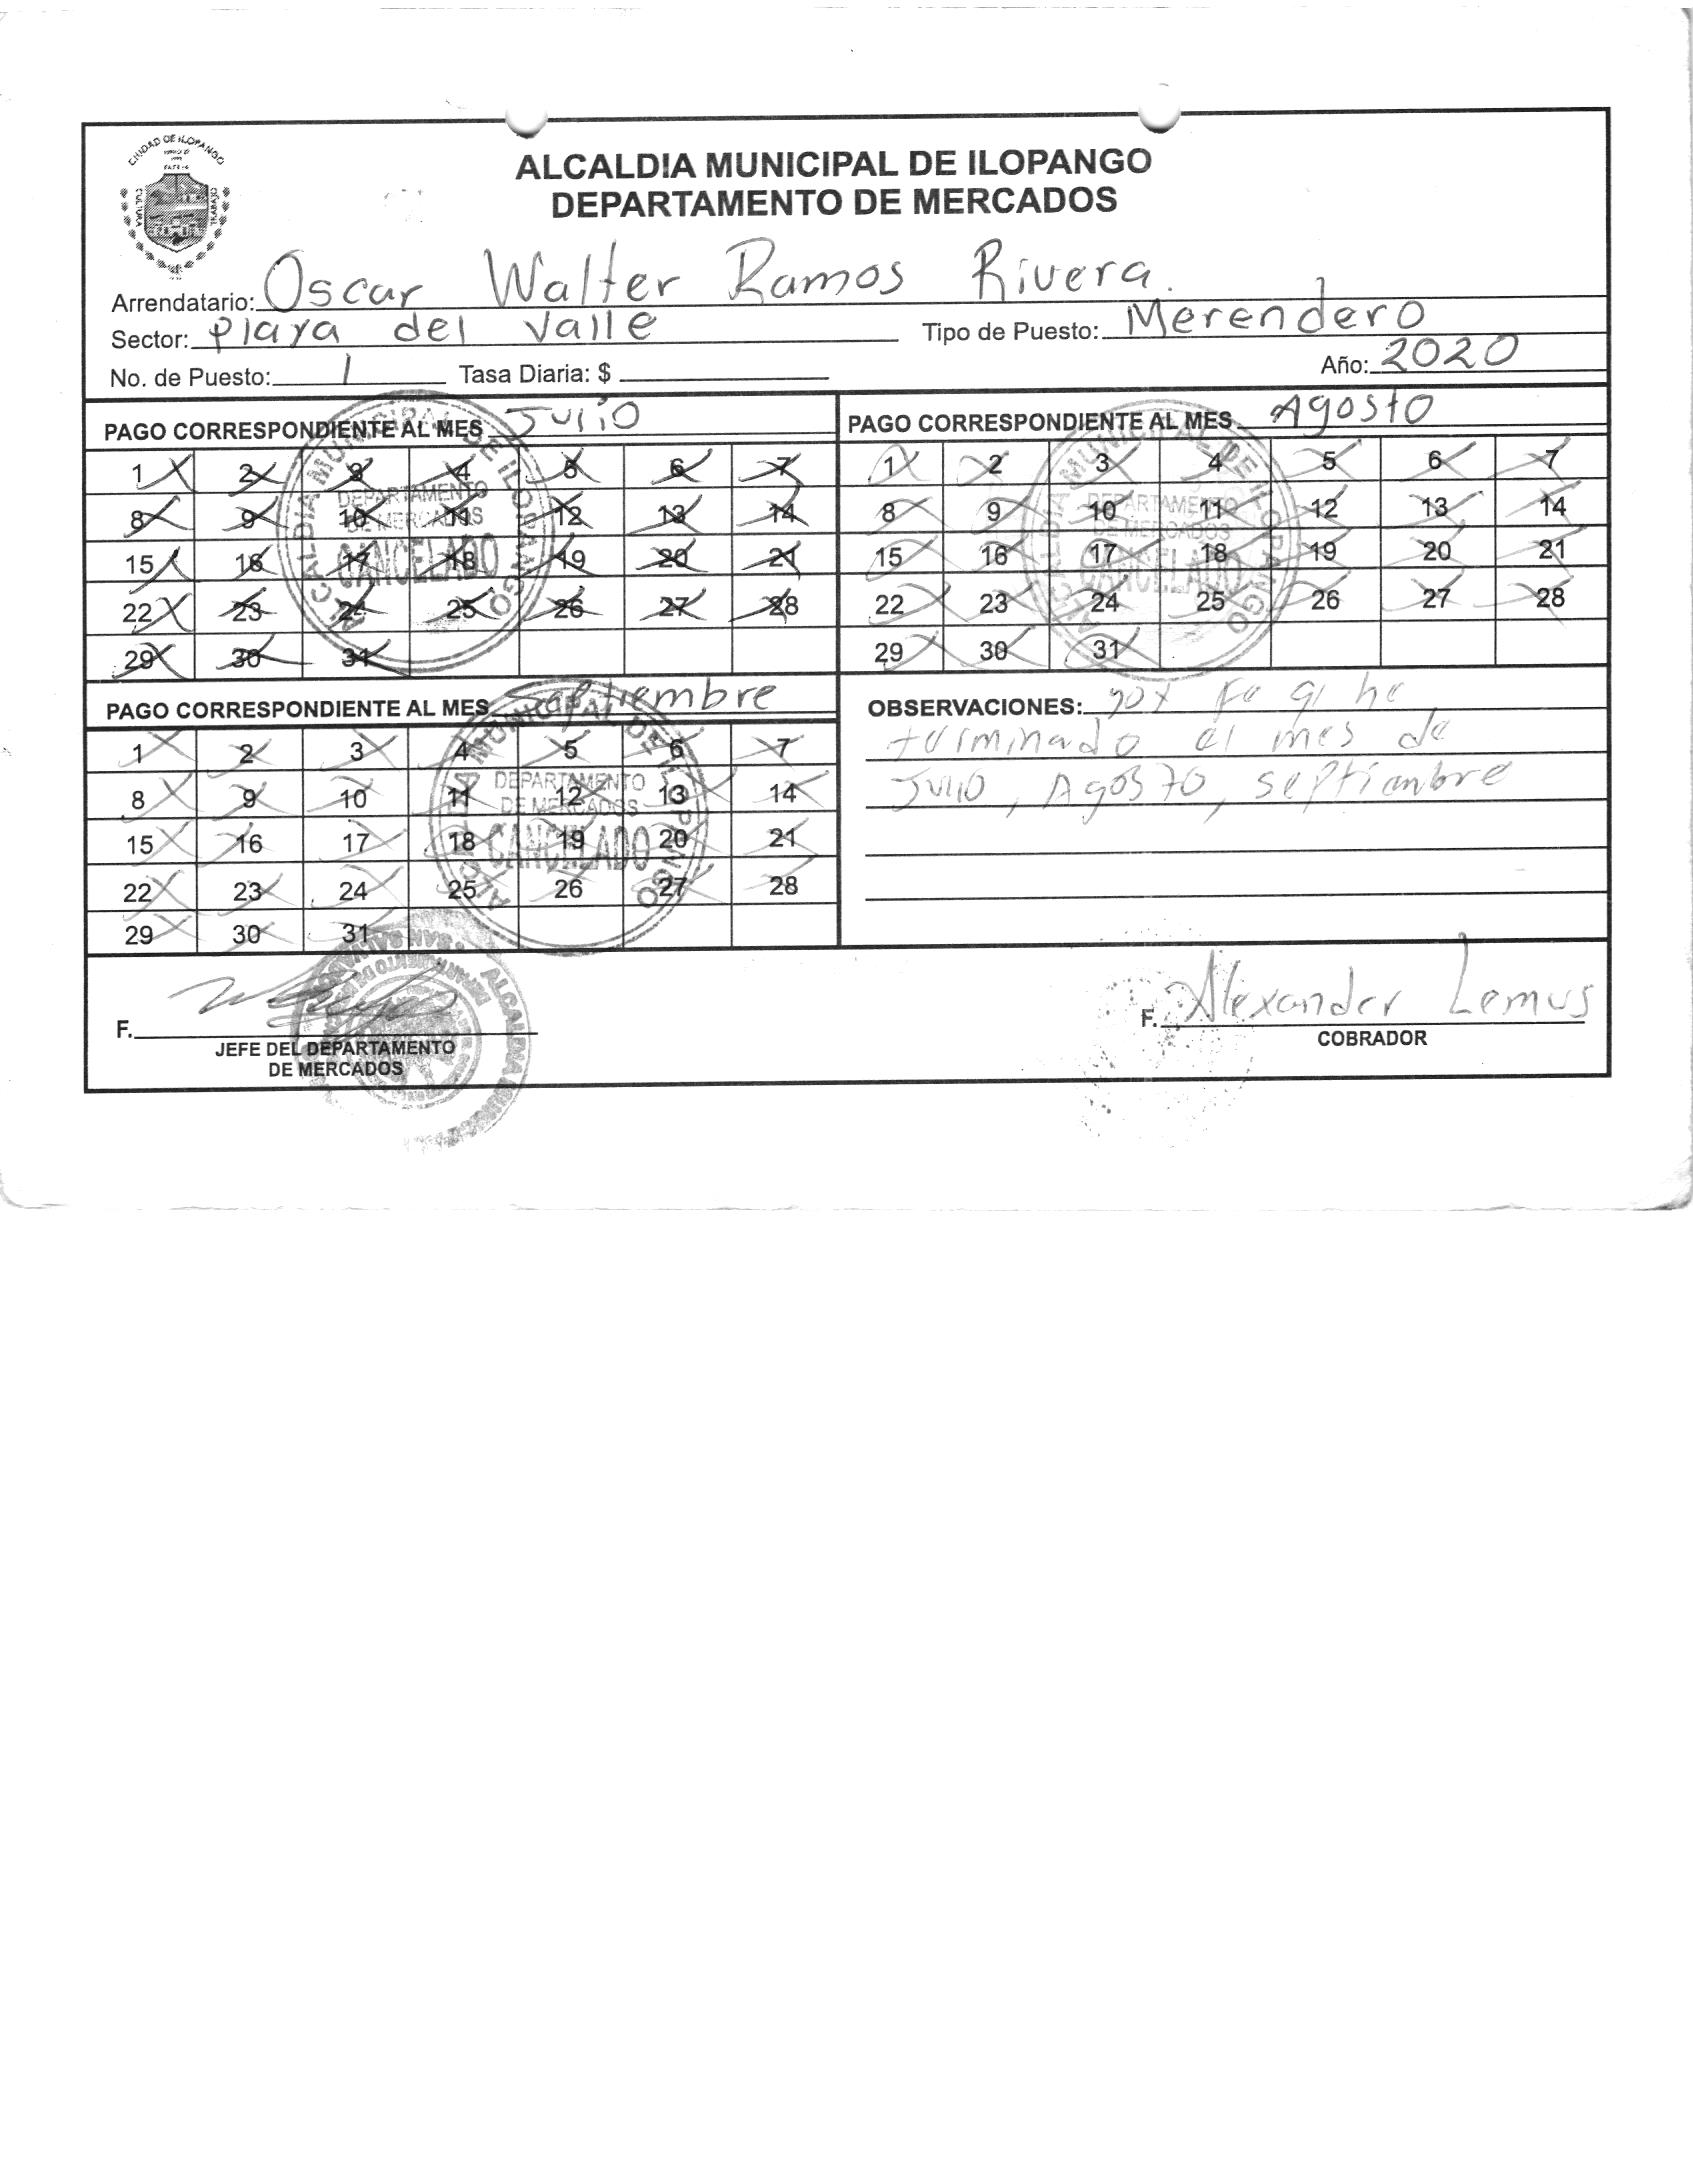 CIUDAD DE ILOPANGO
CULTURA TRABAJO
ALCALDIA MUNICIPAL DE ILOPANGO
DEPARTAMENTO DE MERCADOS
Arrendatario: Oscar Walter Ramos Rivera.
Sector: Playa del Valle Tipo de Puesto: Merendero
No. de Puesto: 1 Tasa Diaria: $ Año: 2020
PAGO CORRESPONDIENTE AL MES Julio
1 2 3 4 5 6 7
8 9 10 11 12 13 14
15 16 17 18 19 20 21
22 23 24 25 26 27 28
29 30 31
ALCALDIA MUNICIPAL DE ILOPANGO
DEPARTAMENTO
DE MERCADOS
CANCELADO
PAGO CORRESPONDIENTE AL MES Agosto
1 2 3 4 5 6 7
8 9 10 11 12 13 14
15 16 17 18 19 20 21
22 23 24 25 26 27 28
29 30 31
ALCALDIA MUNICIPAL DE ILOPANGO
DEPARTAMENTO
DE MERCADOS
CANCELADO
PAGO CORRESPONDIENTE AL MES Septiembre
1 2 3 4 5 6 7
8 9 10 11 12 13 14
15 16 17 18 19 20 21
22 23 24 25 26 27 28
29 30 31
ALCALDIA MUNICIPAL DE ILOPANGO
DEPARTAMENTO
DE MERCADOS
CANCELADO
OBSERVACIONES: he
terminado el mes de
Julio, Agosto, septiembre
F.
JEFE DEL DEPARTAMENTO
DE MERCADOS
F. Alexander Lemus
COBRADOR